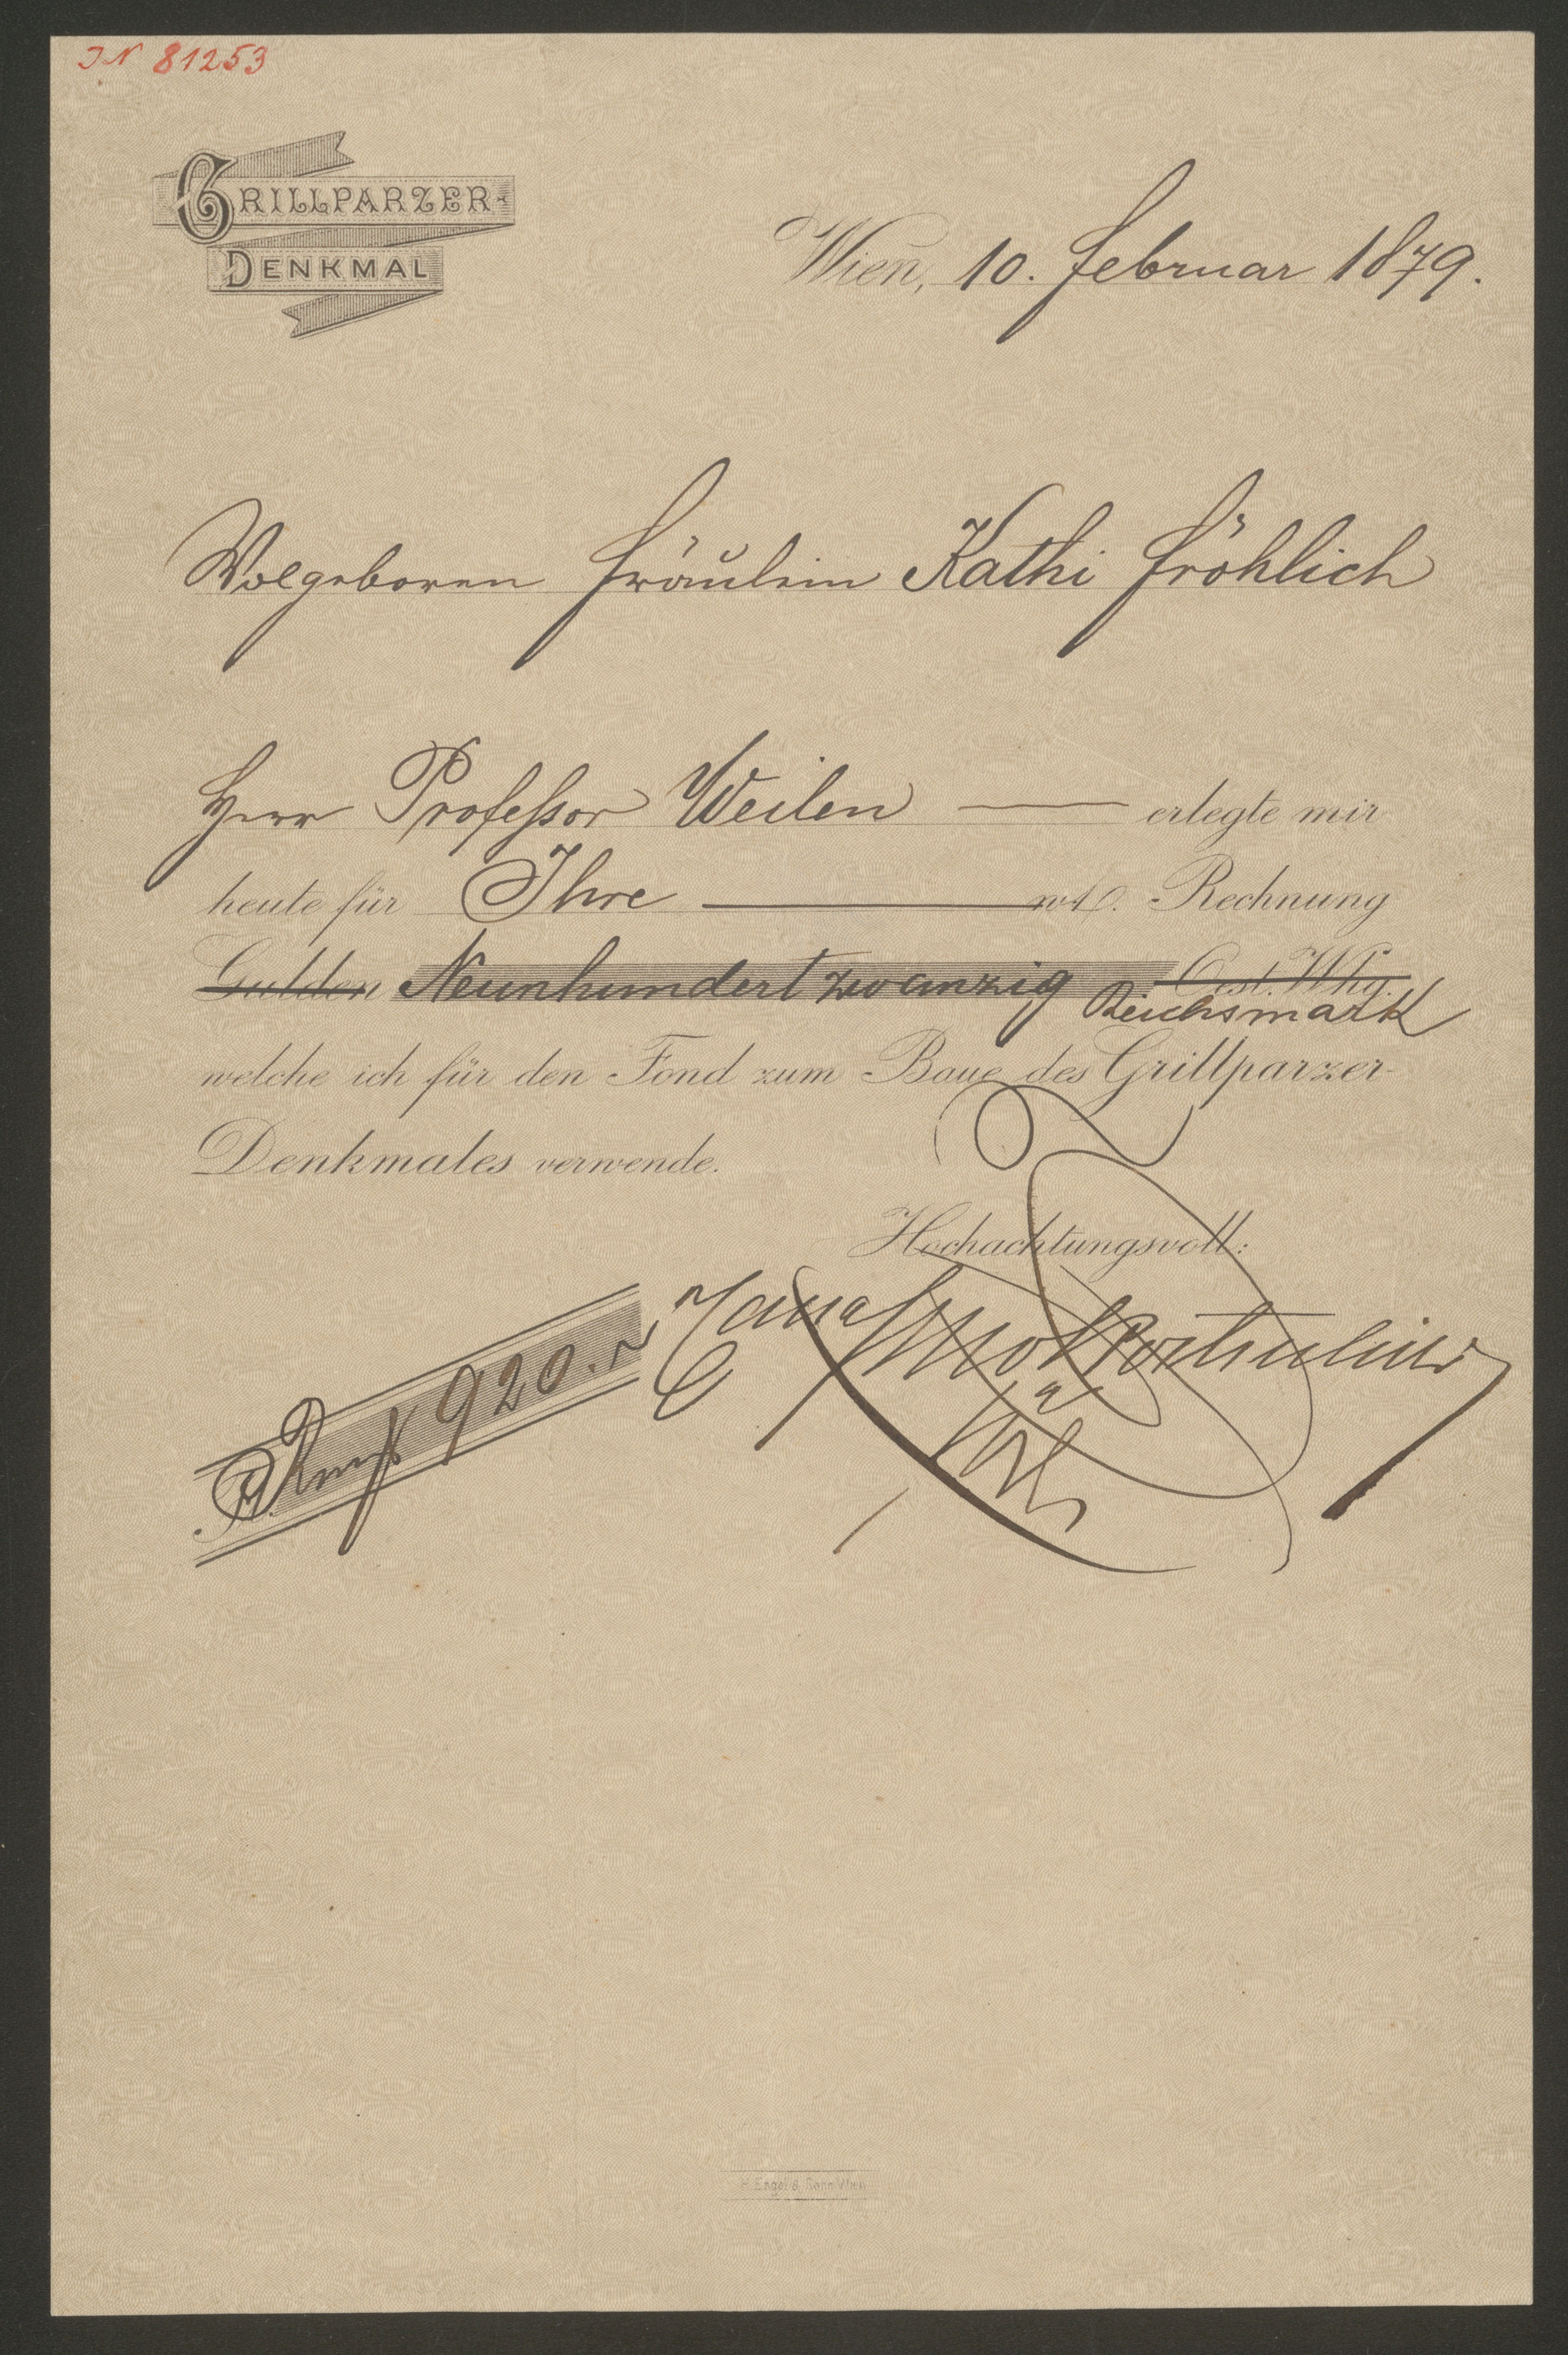 IN 81253
GRILLPARZER-
DENKMAL
Wien, 10. Februar 1879.
Wolgeboren Fräulein Kathi Fröhlich
Herr Professor Weilen — erlegte mir
heute für Ihre — werthe Rechnung
Gulden Neunhundert zwanzig Oest. Whg.
Reichsmark
welche ich für den Fond zum Baue des Grillparzer-
Denkmales verwende.
Hochachtungsvoll:
Fl. Rm 920.
H. Engel & Sohn Wien